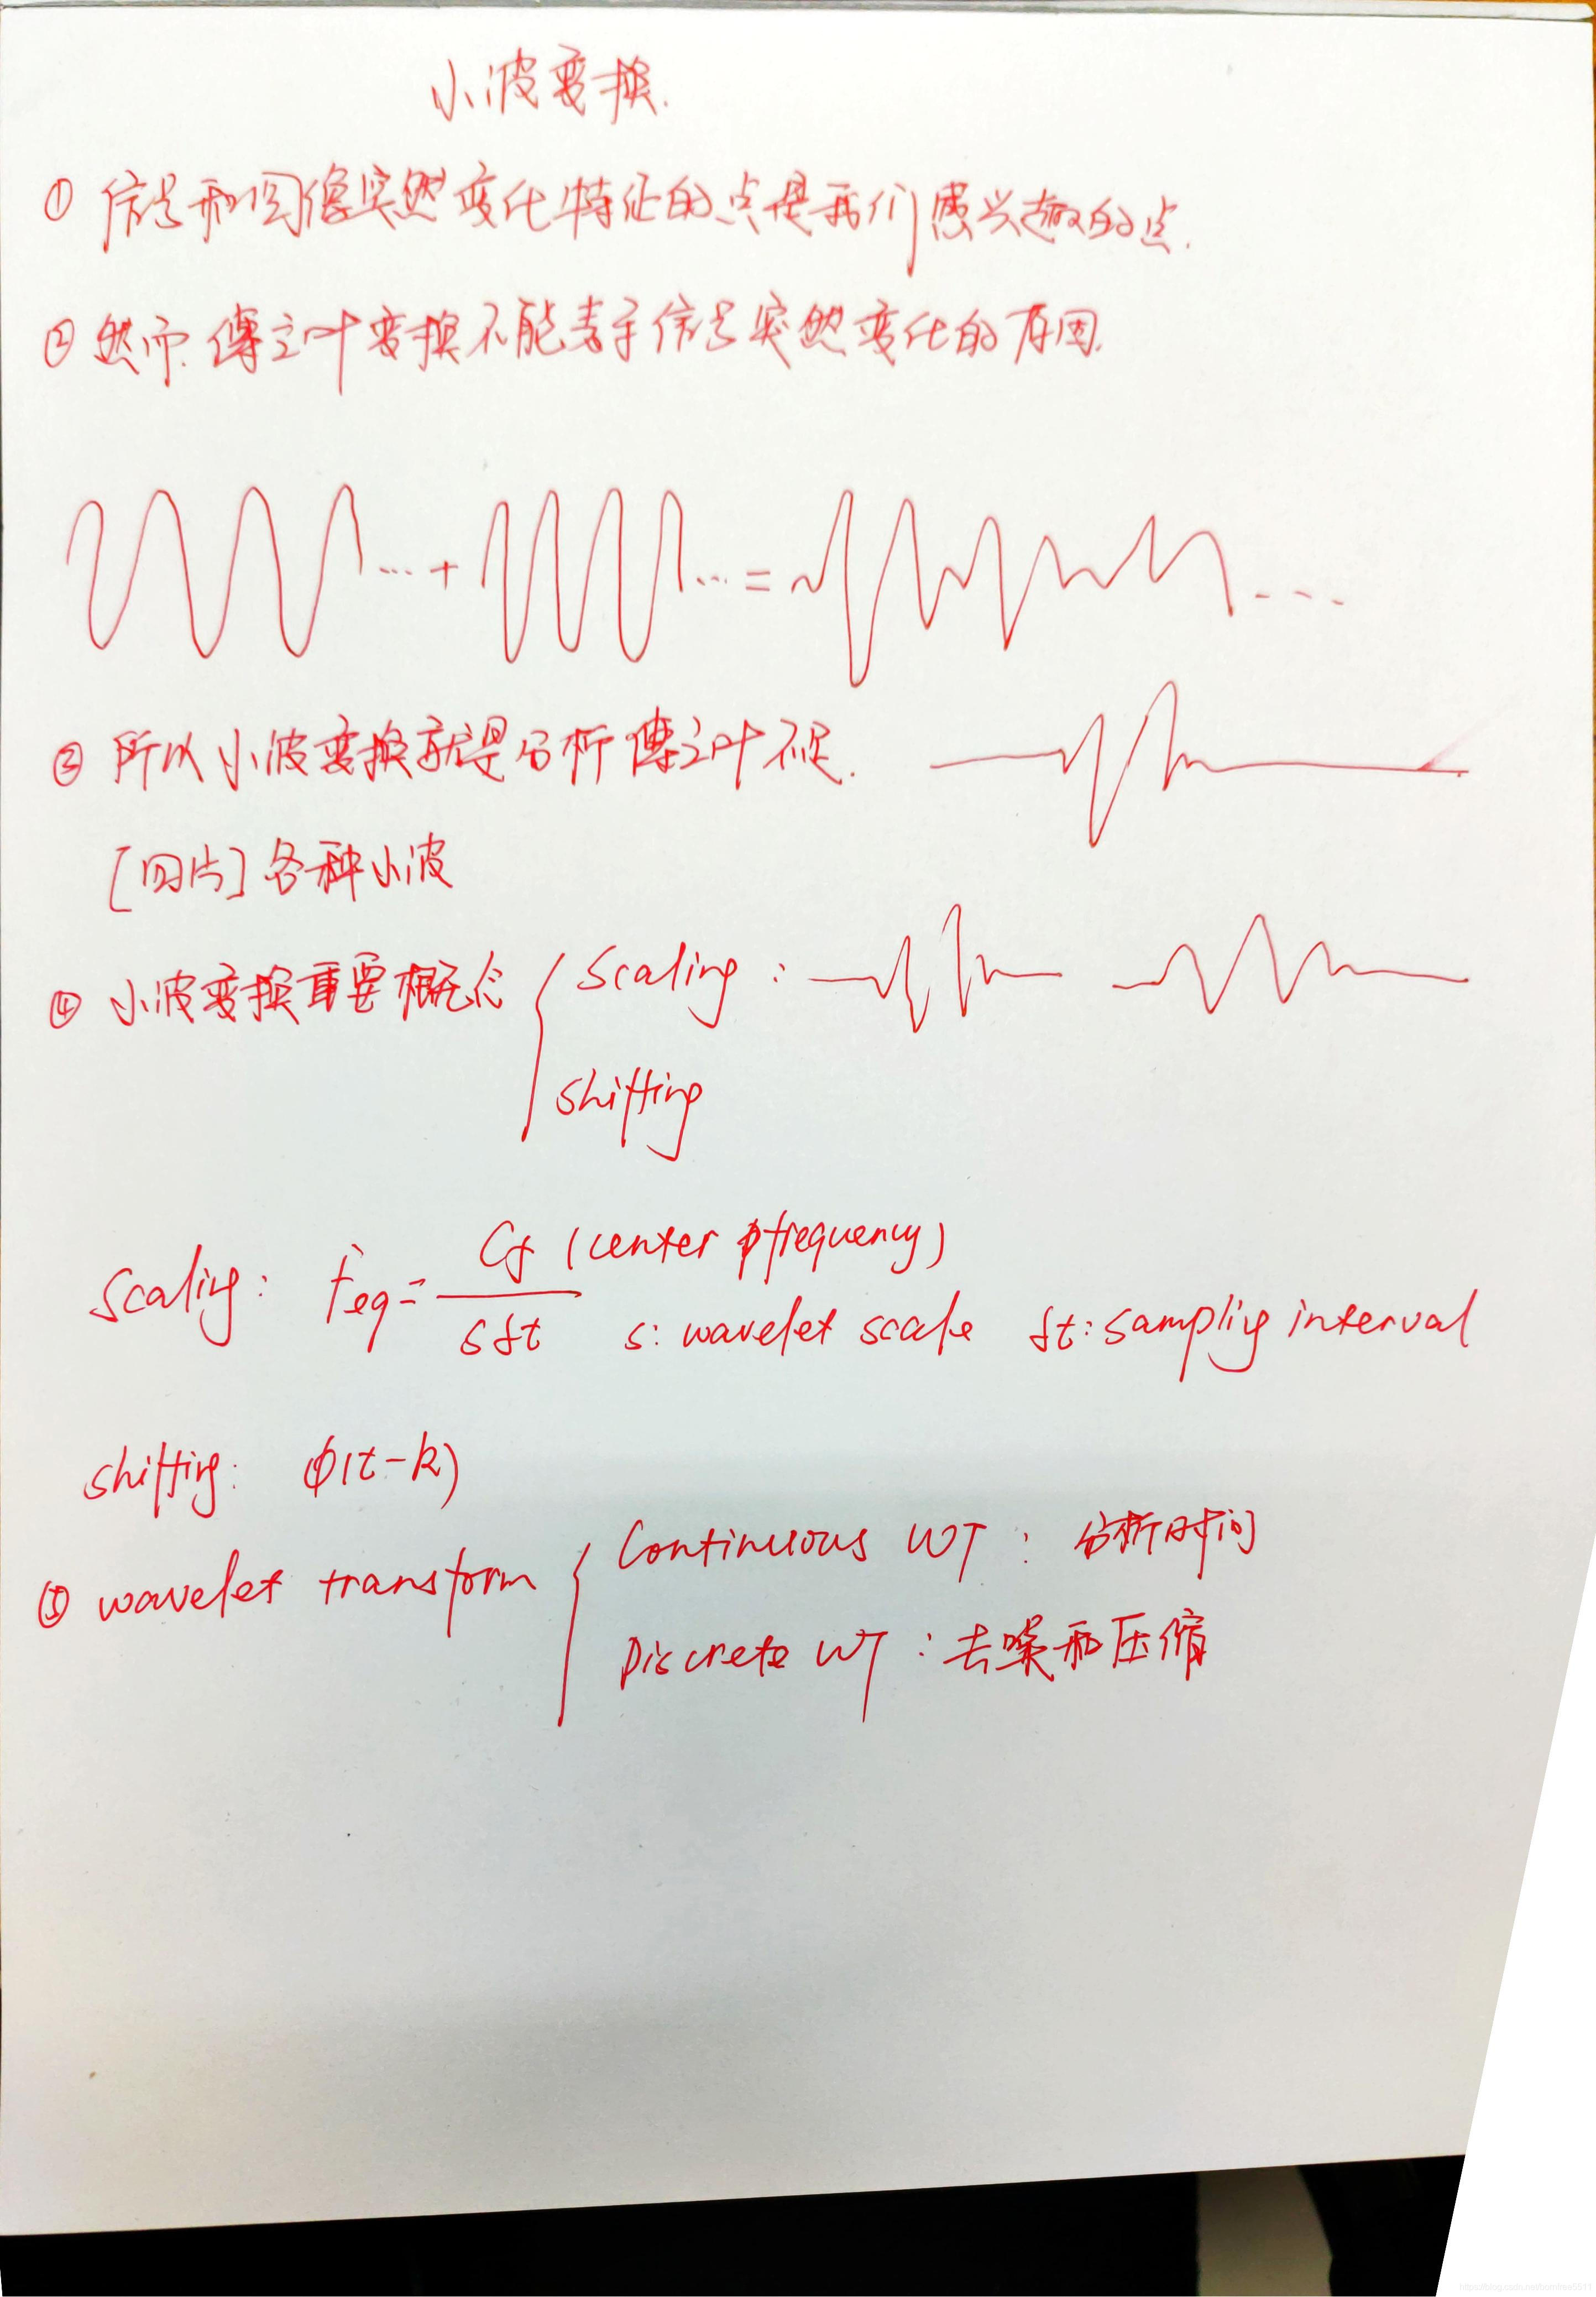 小波变换.
① 信号和图像突然变化特征的点是我们感兴趣的点.
② 然而.傅立叶变换不能表示信号突然变化的原因.
... + ... = ...
③ 所以小波变换就是分析傅立叶不足.
[图片] 各种小波
④ 小波变换重要概念 { scaling :
shifting
scaling: Feq = Cf (center frequency)
sδt s: wavelet scale δt: sampling interval
shifting: φ(t-k)
⑤ wavelet transform { Continuous WT : 分析时间
Discrete WT : 去噪和压缩